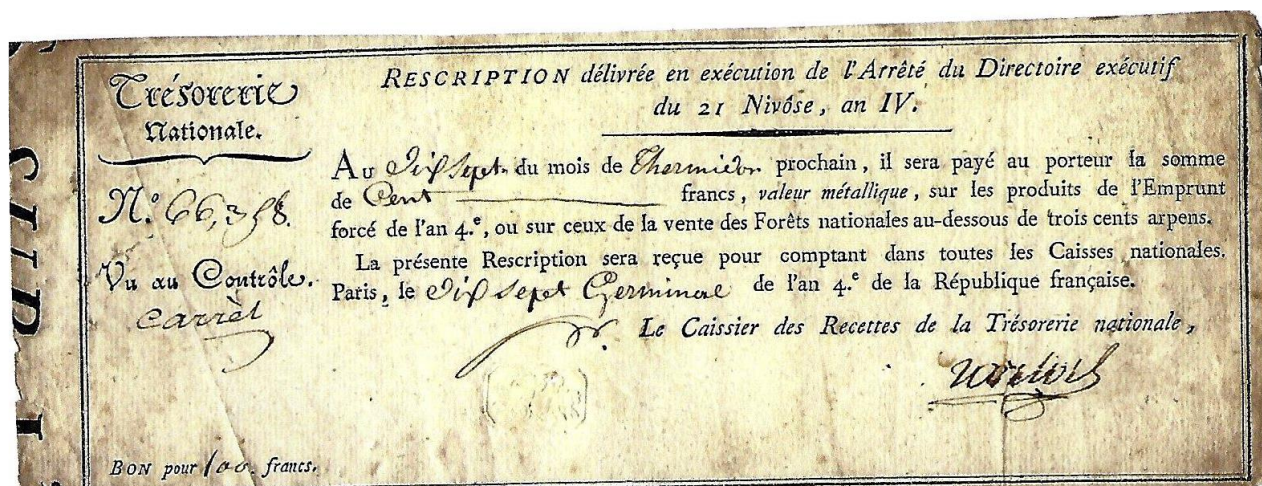 Trésorerie
Nationale.
N.º 66,358.
Vu au Contrôle.
Carrèt
RESCRIPTION délivrée en exécution de l'Arrêté du Directoire exécutif
du 21 Nivôse, an IV.
Au Dix Sept du mois de Thermidor prochain, il sera payé au porteur la somme
de Cent francs, valeur métallique, sur les produits de l'Emprunt
forcé de l'an 4.e, ou sur ceux de la vente des Forêts nationales au-dessous de trois cents arpens.
La présente Rescription sera reçue pour comptant dans toutes les Caisses nationales.
Paris, le Dix Sept Germinal de l'an 4.e de la République française.
Le Caissier des Recettes de la Trésorerie nationale,
BON pour 100. francs.